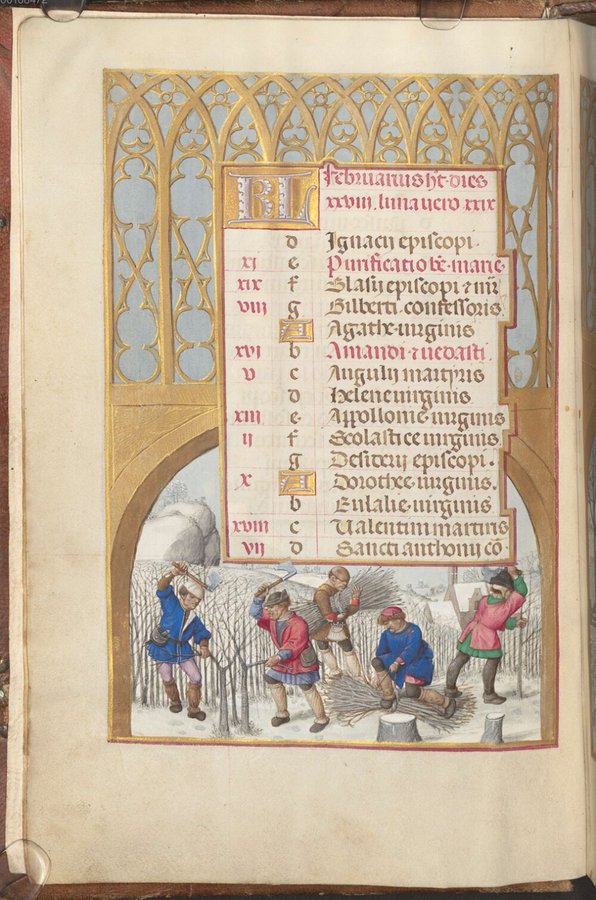 KL Februarius ht dies
xxviii. luna vero xxix
d Ignacii episcopi.
xi e Purificatio be. marie
xix f Blasii episcopi z mr
viii g Gilberti confessoris
A Agathe virginis
xvi b Amandi z vedasti.
v c Anguli martyris
d Helene virginis
xiii e Appollonie virginis
ii f Scolastice virginis
g Desiderii episcopi.
x A Dorothee virginis.
b Eulalie virginis
xviii c Valentini martiris
vii d Sancti anthonii co